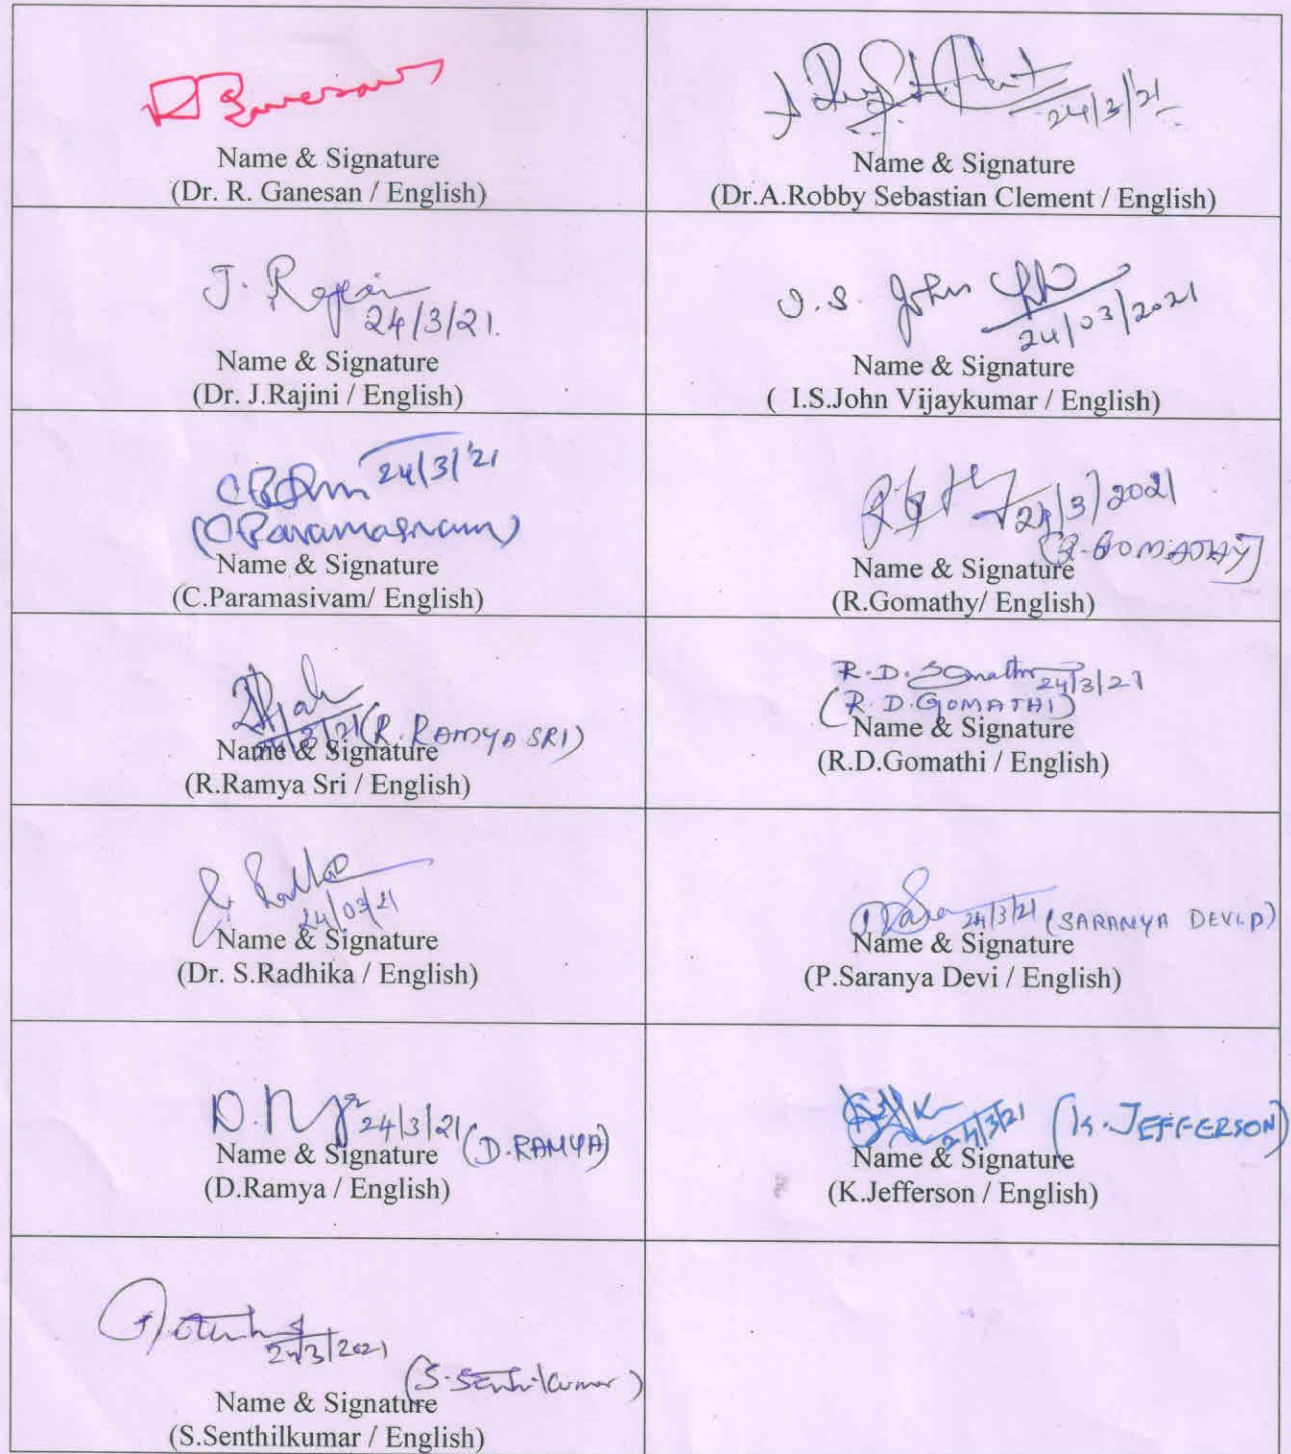 R Ganesan
Name & Signature
(Dr. R. Ganesan / English)
24/3/21
Name & Signature
(Dr.A.Robby Sebastian Clement / English)
J. Rajini
24/3/21.
Name & Signature
(Dr. J.Rajini / English)
I.S. John
24/03/2021
Name & Signature
( I.S.John Vijaykumar / English)
24/3/'21
(C Paramasivam)
Name & Signature
(C.Paramasivam/ English)
24/3/2021
(R-GOMATHY)
Name & Signature
(R.Gomathy/ English)
24/3/21 (R. RAMYA SRI)
Name & Signature
(R.Ramya Sri / English)
R.D. Gomathi 24/3/21
(R. D. GOMATHI)
Name & Signature
(R.D.Gomathi / English)
24/03/21
Name & Signature
(Dr. S.Radhika / English)
24/3/21 (SARANYA DEVI.P)
Name & Signature
(P.Saranya Devi / English)
24/3/21 (D.RAMYA)
Name & Signature
(D.Ramya / English)
24/3/21 (K. JEFFERSON)
Name & Signature
(K.Jefferson / English)
24/3/2021
(S.Senthilkumar)
Name & Signature
(S.Senthilkumar / English)